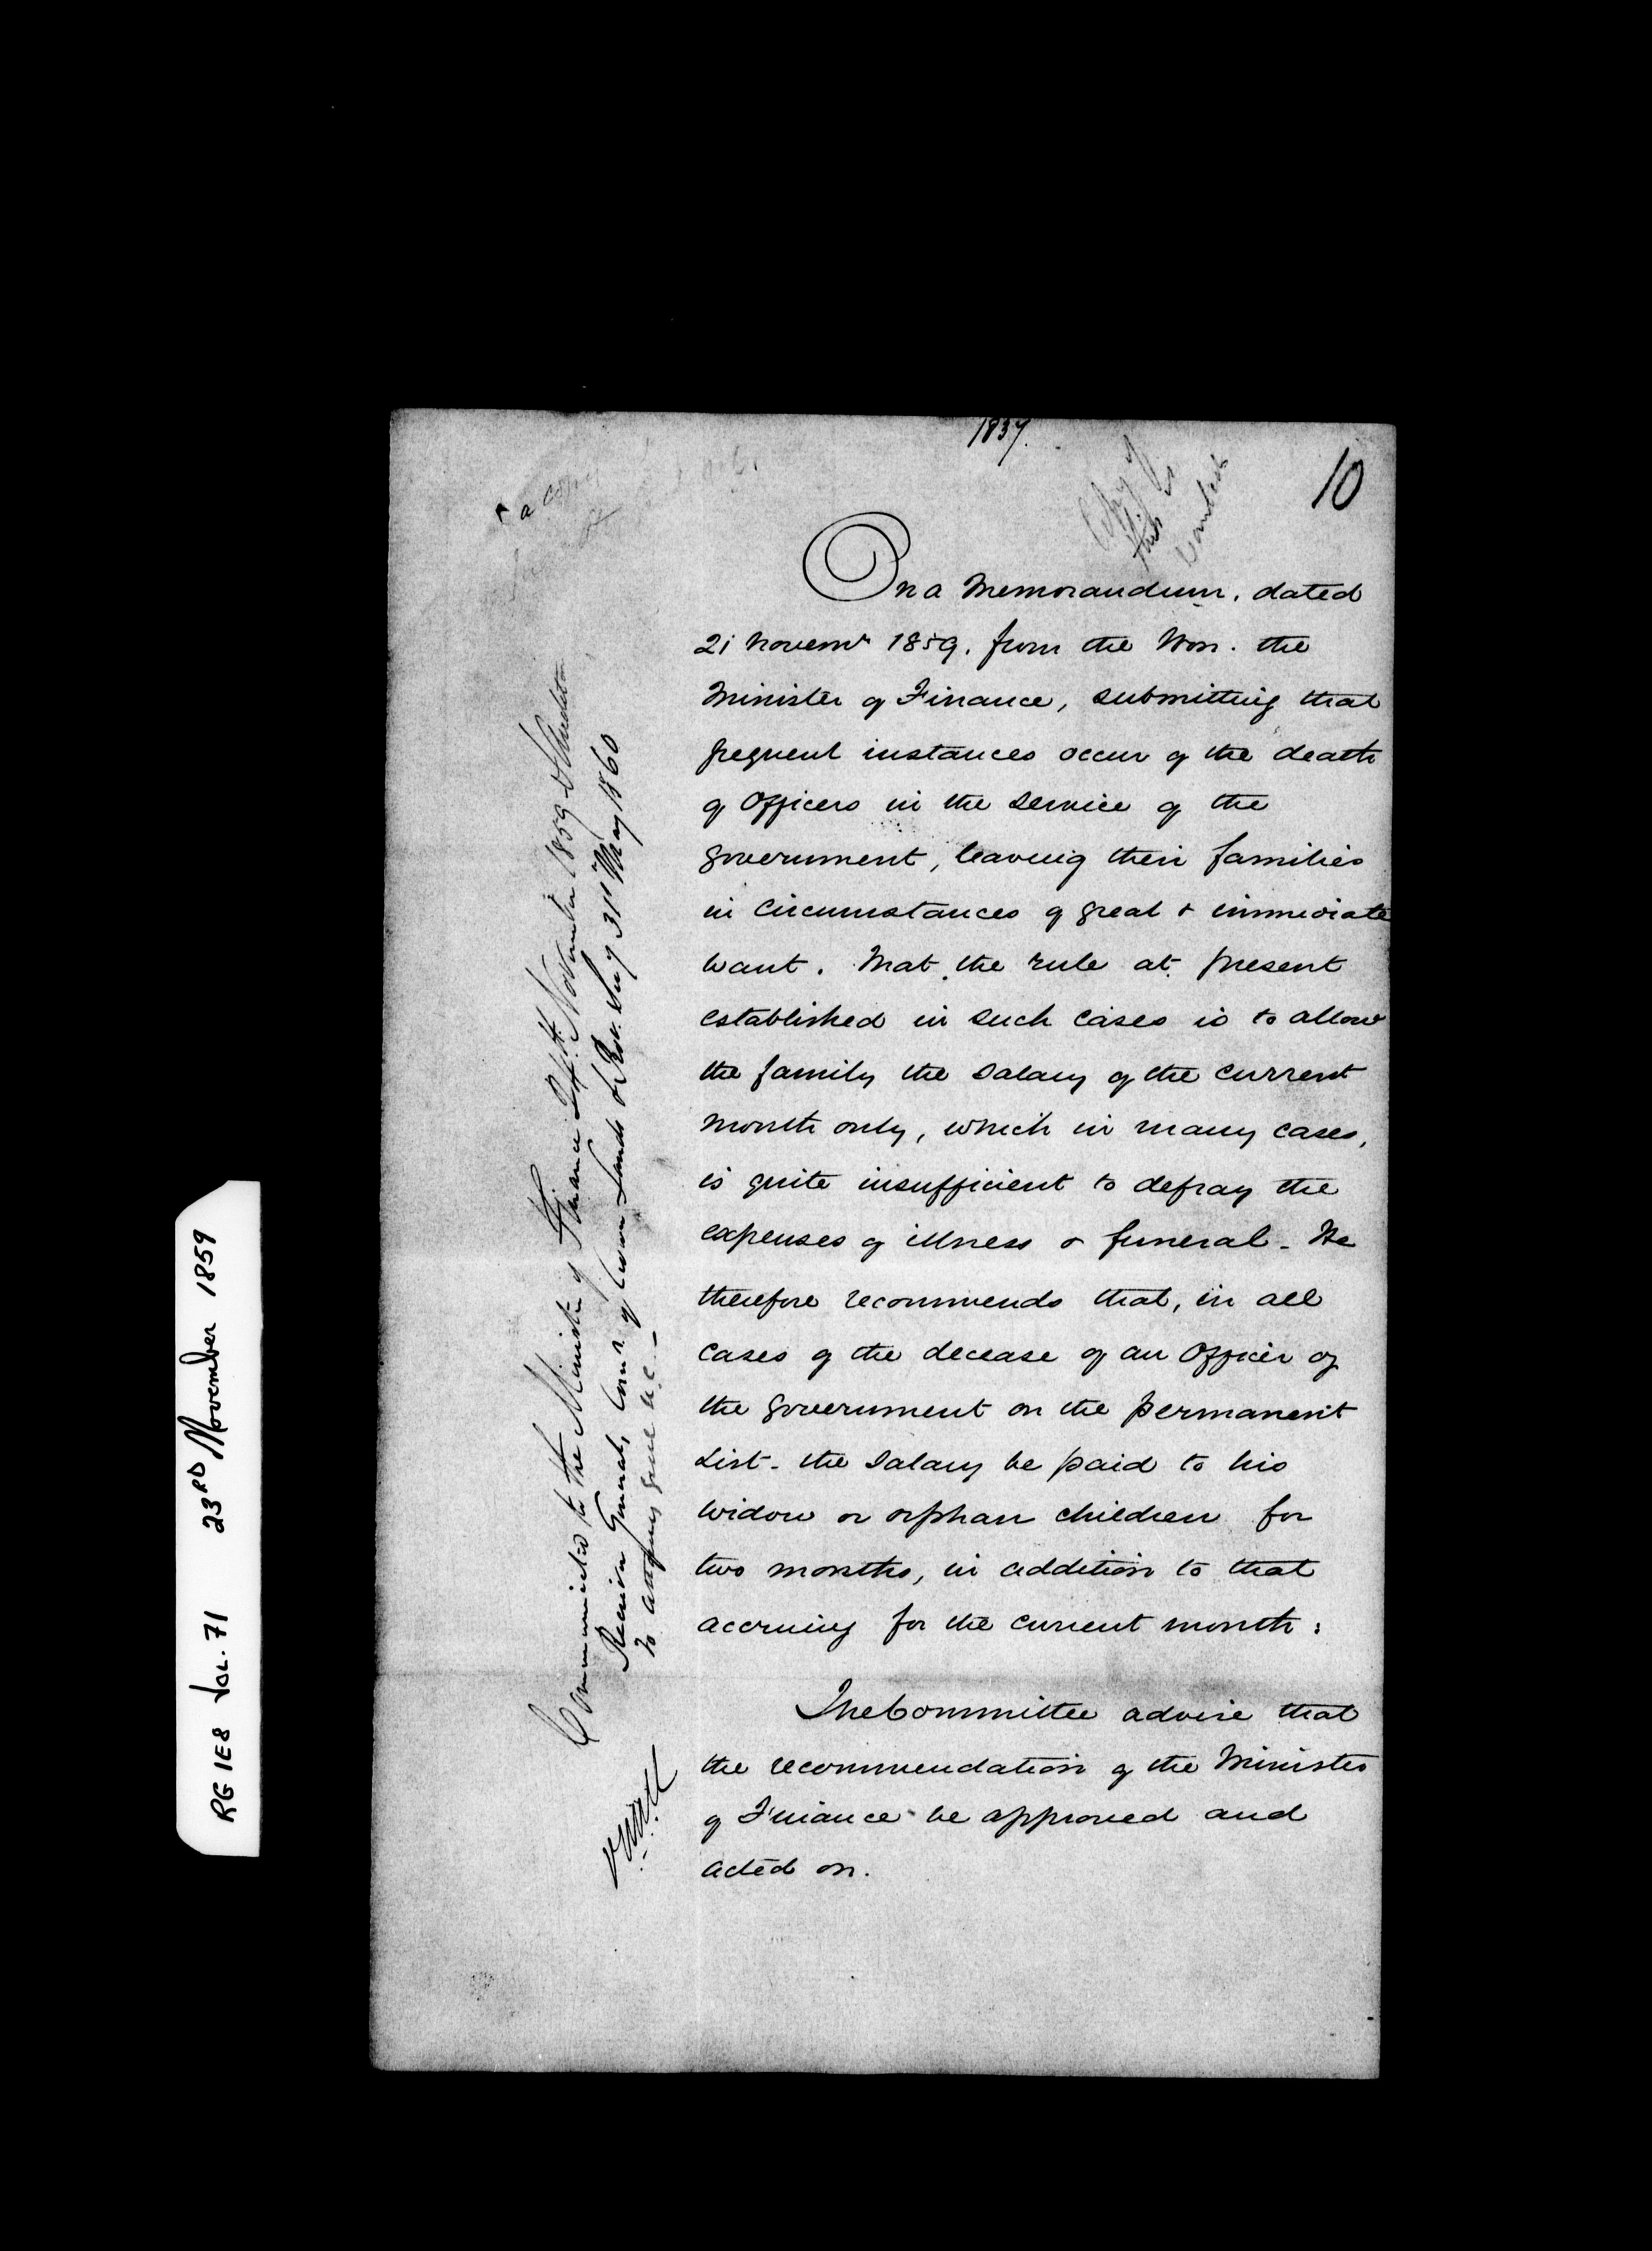 1837.
10
Copy of
this is
wanted
a copy
On a Memorandum, dated
21 Novemr 1859. from the Hon. the
Minister of Finance, submitting that
frequent instances occur of the death
of Officers in the service of the
Government, leaving their families
in circumstances of great & immediate
want. That the rule at present
established in such cases is to allow
the family the salary of the current
month only, which in many cases,
is quite insufficient to defray the
expenses of illness & funeral - He
therefore recommends that, in all
cases of the decease of an Officer of
the Government on the permanent
List - the salary be paid to his
widow or orphan children for
two months, in addition to that
accruing for the current month:
The Committee advise that
the recommendation of the Minister
of Finance be approved and
acted on.
Communicated to the Minister of Finance 24th November 1859 & Auditor
Receiver General, Comr. of Crown Lands & Prov. Secy 31st May 1860
To Attorney Genl U.C. -
RG 1E8 Vol. 71 23RD November 1859